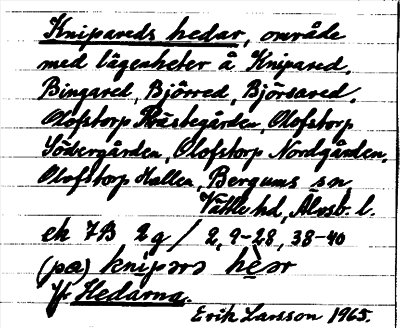 Knipareds hedar, område
med lägenheter å Knipared,
Bingared, Björred, Björsared,
Olofstorp Prästegården, Olofstorp
Södergården, Olofstorp Nordgården,
Olofstorp Hallen, Bergums sn,
Vättle hd, Älvsb. l.
ek 7B 2g / 2, 9-28, 38-40
(pa) knipərs
Jfr Hedarna.
Erik Larsson 1965.